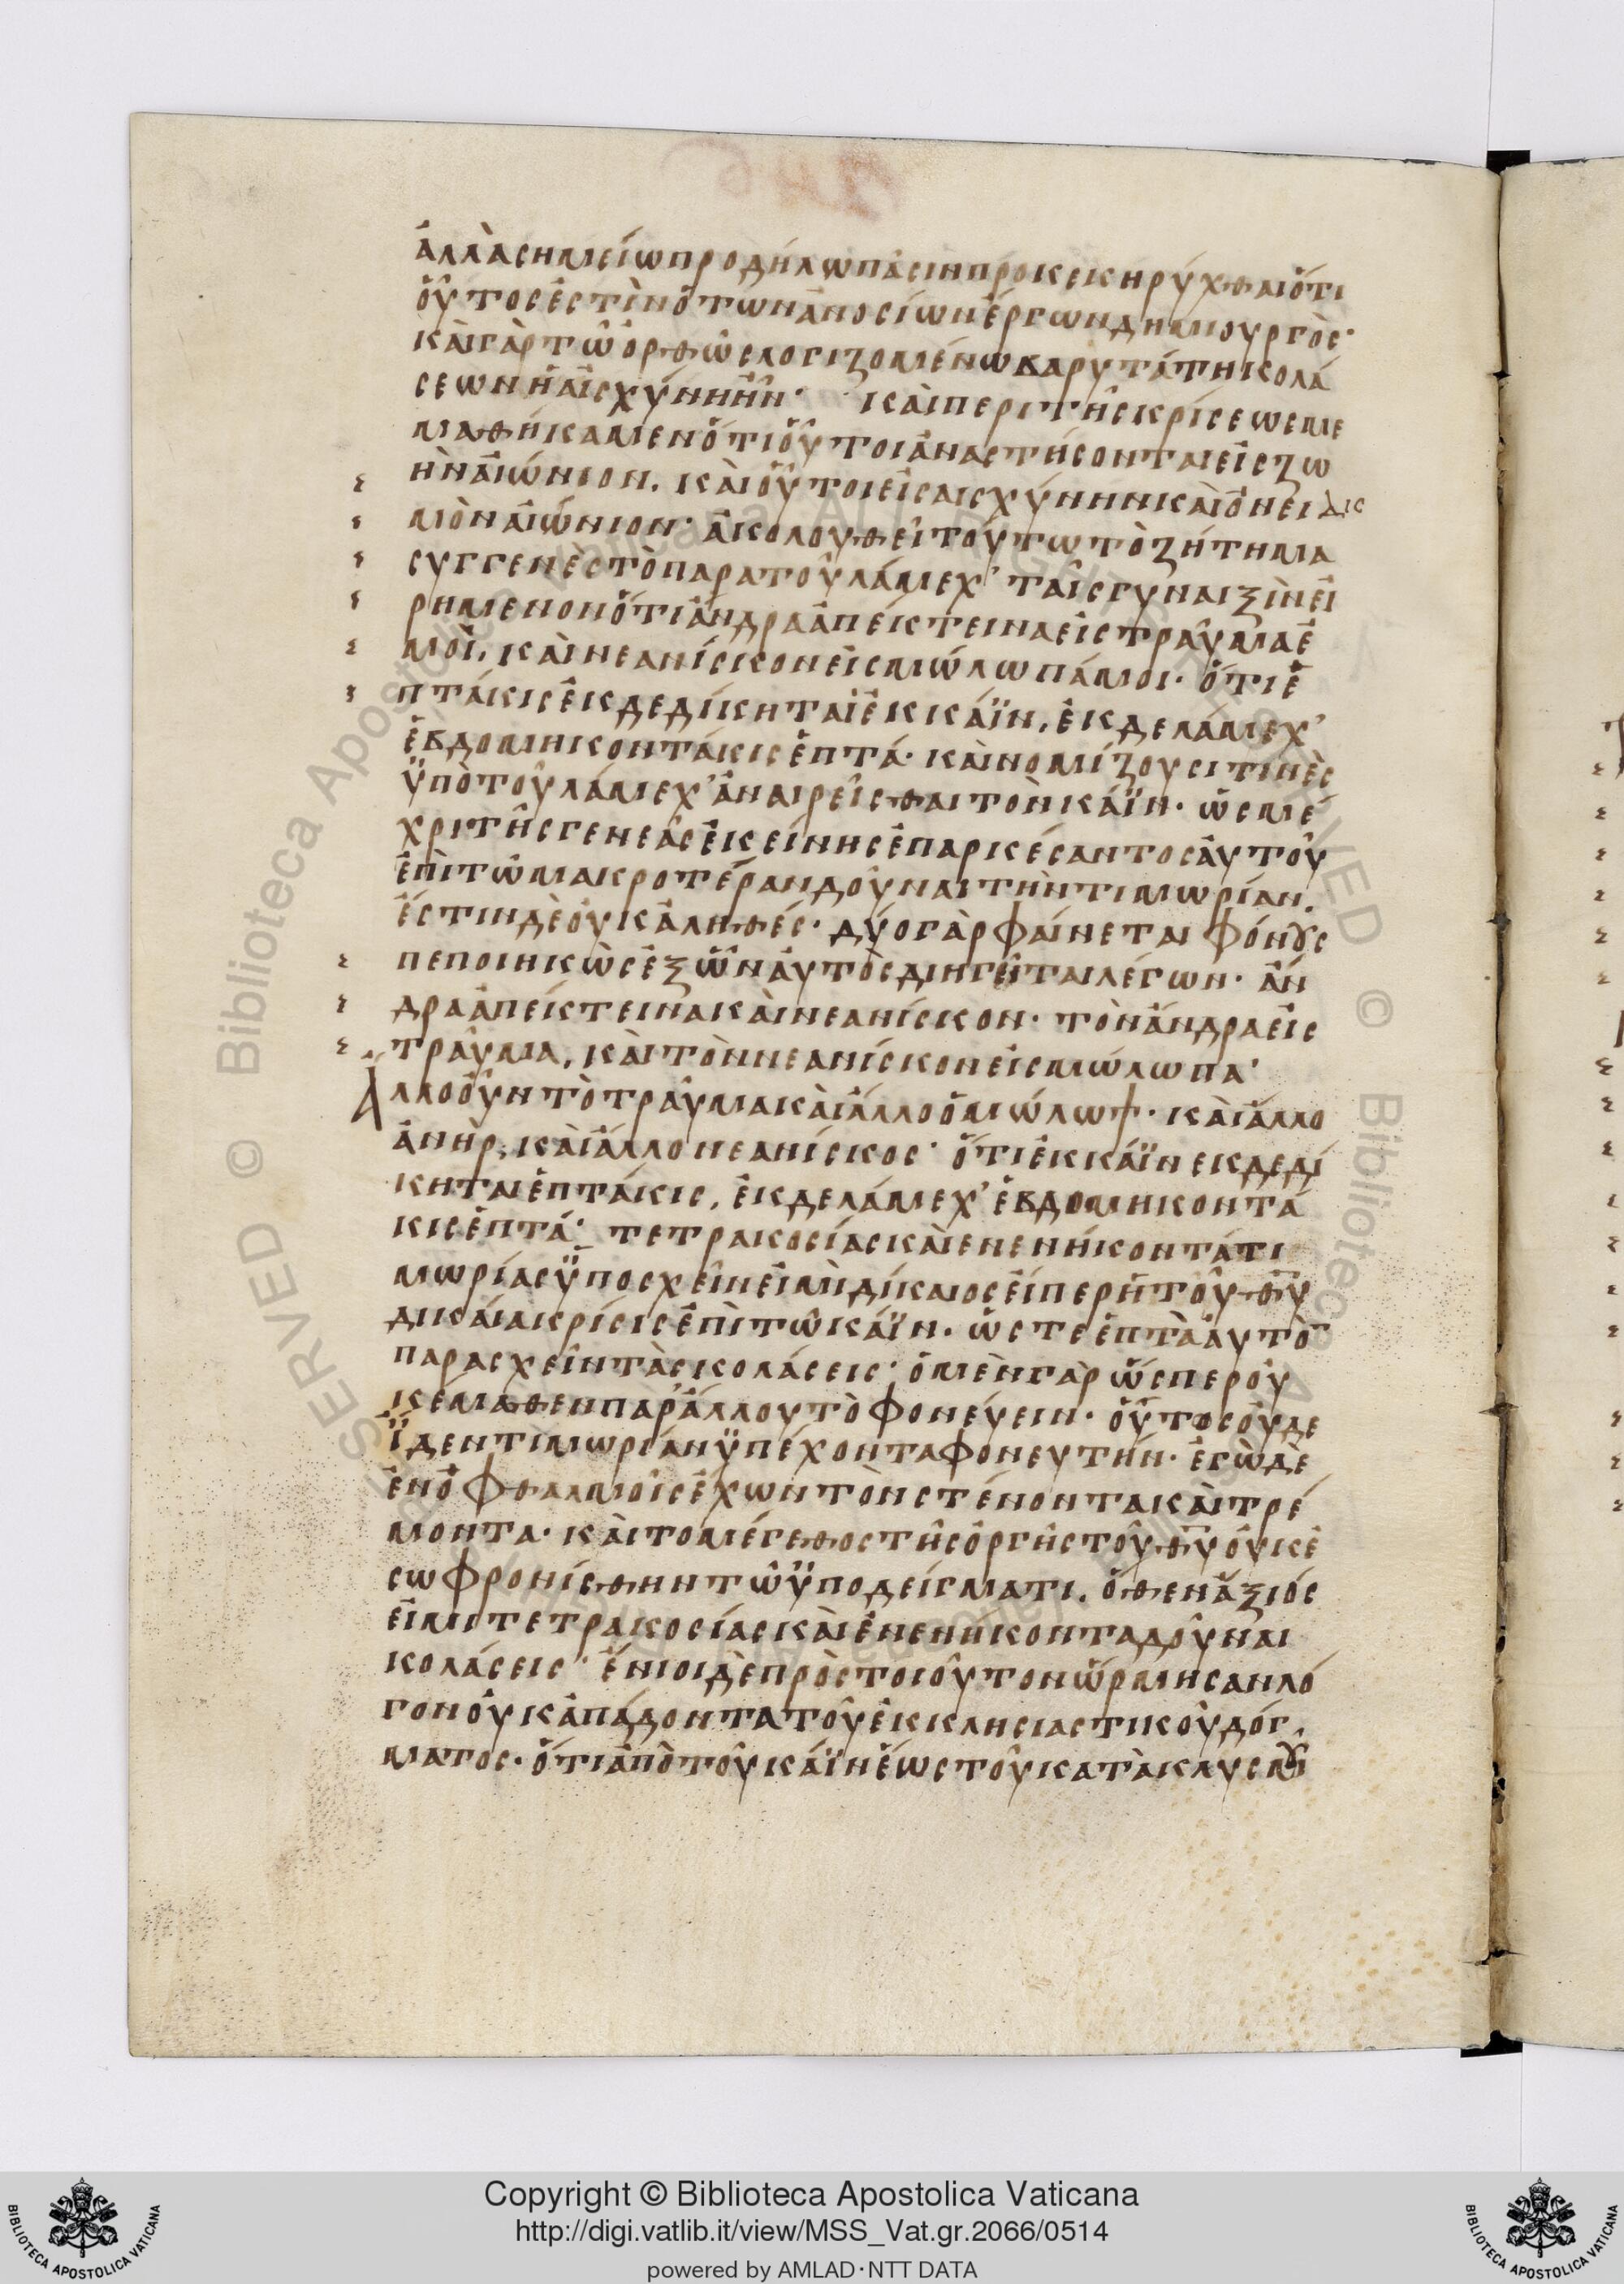 ἀλλὰ σημείω προδήλω πᾶσιν προκεκηρύχθαι ὅτι
οὗτος ἐστὶν ὁ τῶν ἀνοσίων ἔργων δημιουργὸς·
καὶ γὰρ τῶ ὀρθῶς λογιζομένω βαρυτάτη κολά
σεων ἡ αἰσχύνη ἦν· καὶ περὶ τῆς κρίσεως με
μαθήκαμεν ὅτι οὗτοι ἀναστήσονται εἰς ζω
ὴν αἰώνιον. καὶ οὗτοι εἰς αἰσχύνην καὶ ὀνειδις
μὸν αἰώνιον· ἀκολουθεῖ τούτω τὸ ζήτημα
συγγενὲς τὸ παρὰ τοῦ λάμεχ’ ταῖς γυναιξὶν εἰ
ρημενον ὅτι ἄνδρα ἀπέκτεινα εἰς τραῦμα ἐ
μοὶ, καὶ νεανίσκον εἰς μώλωπά μοι· ὅτι ἑ
πτάκις ἐκδεδίκηται ἐκ κάϊν, ἐκ δε λάμεχ’
ἑβδομηκοντάκις ἑπτά· καὶ νομίζουσι τινὲς
ὑπὸ τοῦ λάμεχ’ ἀναιρεῖσθαι τὸν κάϊν· ὡς μέ
χρι τῆς γενεᾶς ἐκείνης ἐπαρκέσαντος αὐτοῦ
ἐπὶ τῶ μακροτέραν δοῦναι τὴν τιμωρίαν.
ἔστιν δὲ οὐκ ἀληθές· δύο γὰρ φαίνεται φόνους
πεποιηκὼς ἐξ ὧν αὐτὸς διηγεῖται λέγων· ἄν
δρα ἀπέκτεινα καὶ νεανίσκον· τὸν ἄνδρα εἰς
τραῦμα, καὶ τὸν νεανίσκον εἰς μώλωπα·
Ἄλλο οὖν τὸ τραῦμα καὶ ἄλλο ὁ μώλωψ· καὶ ἄλλο
ἀνὴρ, καὶ ἄλλο νεανίσκος· ὅτι ἐκ κάϊν εκδεδί
κηται ἑπτάκις, ἐκ δε λάμεχ’ ἑβδομηκοντά
κις ἑπτά· τετρακοσίας καὶ ενενήκοντα τι
μωρίας ὑποσχεῖν εἰμὶ δίκαιος εἴπερ ἦ τοῦ θυ
δικαία κρίσις ἐπὶ τῶ κάϊν· ὥστε ἑπτὰ αὐτὸν
παρασχεῖν τὰς κολάσεις· ὁ μὲν γὰρ ὥσπερ οὐ
κ ἔμαθεν παρ’ ἄλλου τὸ φονέυειν· οὕτως οὐδε
ἴδεν τιμωρίαν ὑπέχοντα φονευτήν· ἐγὼ δὲ
ἐν ὀφθαλμοῖς ἔχων τὸν στένοντα καὶ τρέ
μοντα· καὶ το μέγεθος τῆς ὀργῆς τοῦ θυ οὐκ ἐ
σωφρονίσθην τῶ ὑποδείγματι. ὅθεν ἄξιός
εἰμι τετρακοσίας καὶ ἐνενήκοντα δοῦναι
κολάσεις· ἔνιοι δὲ πρὸς τοιοῦτον ὥρμησαν λό
γον οὐκ ἀπάδοντα τοῦ ἐκκλησιαστικοῦ δόγ
ματος· ὅτι ἀπὸ τοῦ κάϊν ἕως τοῦ κατακλυσμοῦ
Copyright © Biblioteca Apostolica Vaticana
http://digi.vatlib.it/view/MSS_Vat.gr.2066/0514
powered by AMLAD·NTT DATA